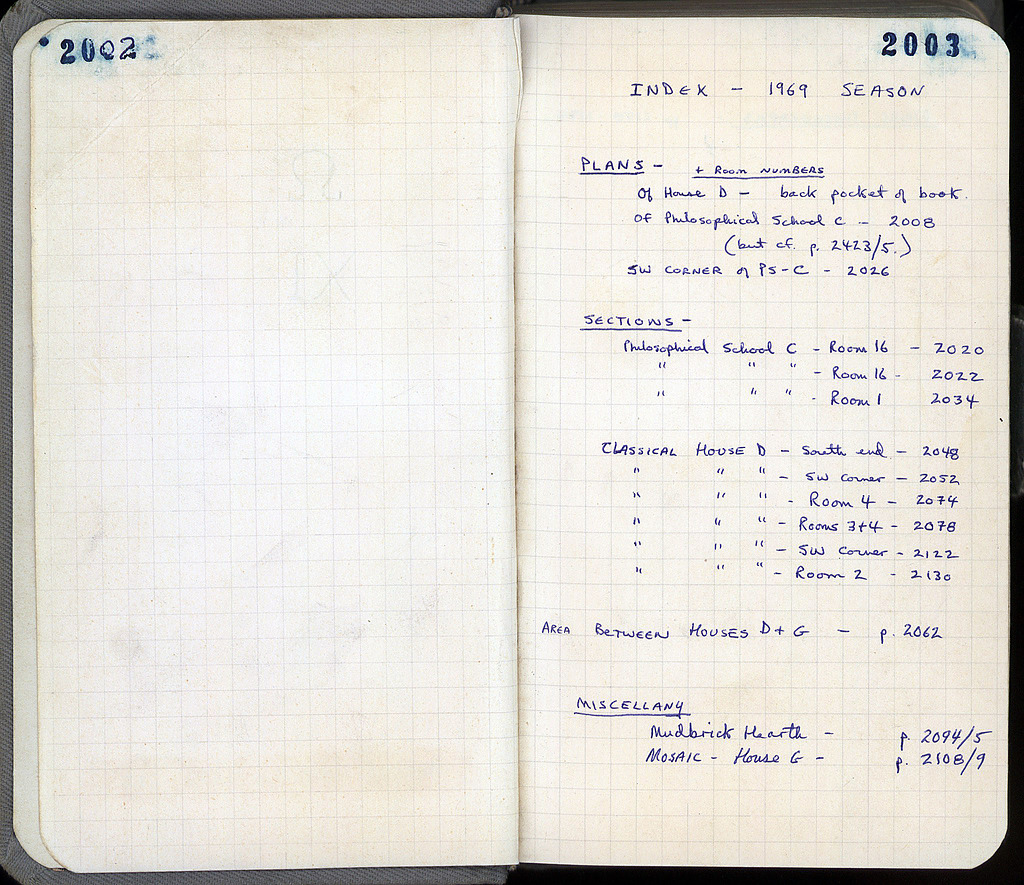 2002
2003
INDEX - 1969 SEASON
PLANS - + ROOM NUMBERS
Of House D - back pocket of book.
Of Philosophical School C - 2008
(but cf. p. 2423/5.)
SW CORNER of PS-C - 2026
SECTIONS -
Philosophical School C - Room 16 - 2020
" " " - Room 16 - 2022
" " " - Room 1 2034
CLASSICAL HOUSE D - South end - 2048
" " " - SW corner - 2052
" " " - Room 4 - 2074
" " " - Rooms 3+4 - 2078
" " " - SW Corner - 2122
" " " - Room 2 - 2130
AREA BETWEEN HOUSES D + G - p. 2062
MISCELLANY
Mudbrick Hearth - p. 2094/5
MOSAIC - House G - p. 2108/9